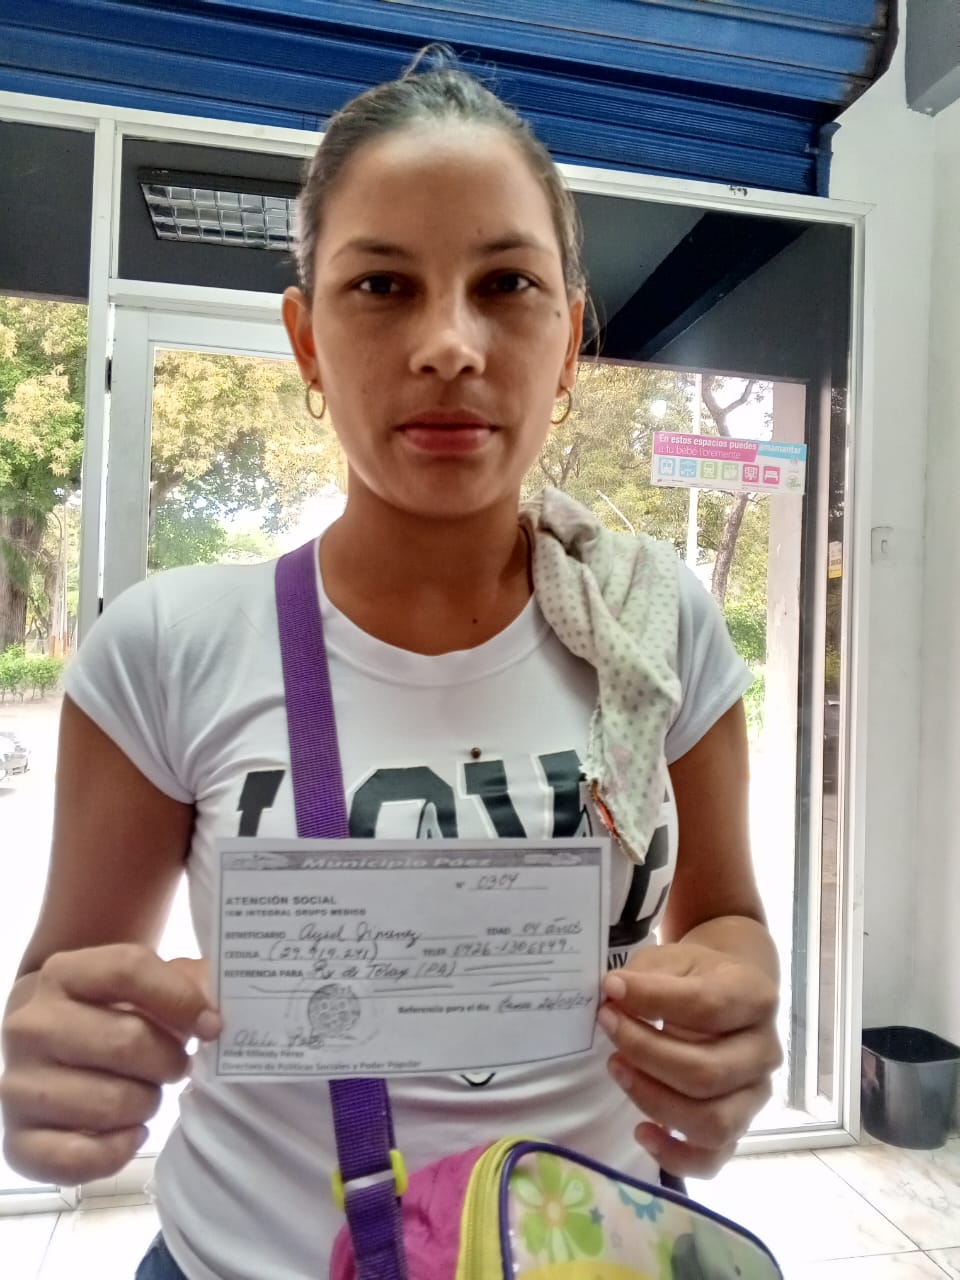 En estos espacios puedes amamantar
a tu bebé libremente
LOVE
Municipio Páez
N° 0304
ATENCIÓN SOCIAL
IGM INTEGRAL GRUPO MEDICO
BENEFICIARIO Aysel Jimenez EDAD 04 años
CEDULA (29.919.241) TELEF. 0426-1306849.
REFERENCIA PARA Rx de Torax (PA)
Referencia para el día 26/03/24
Pérez
Directora de Políticas Sociales y Poder Popular